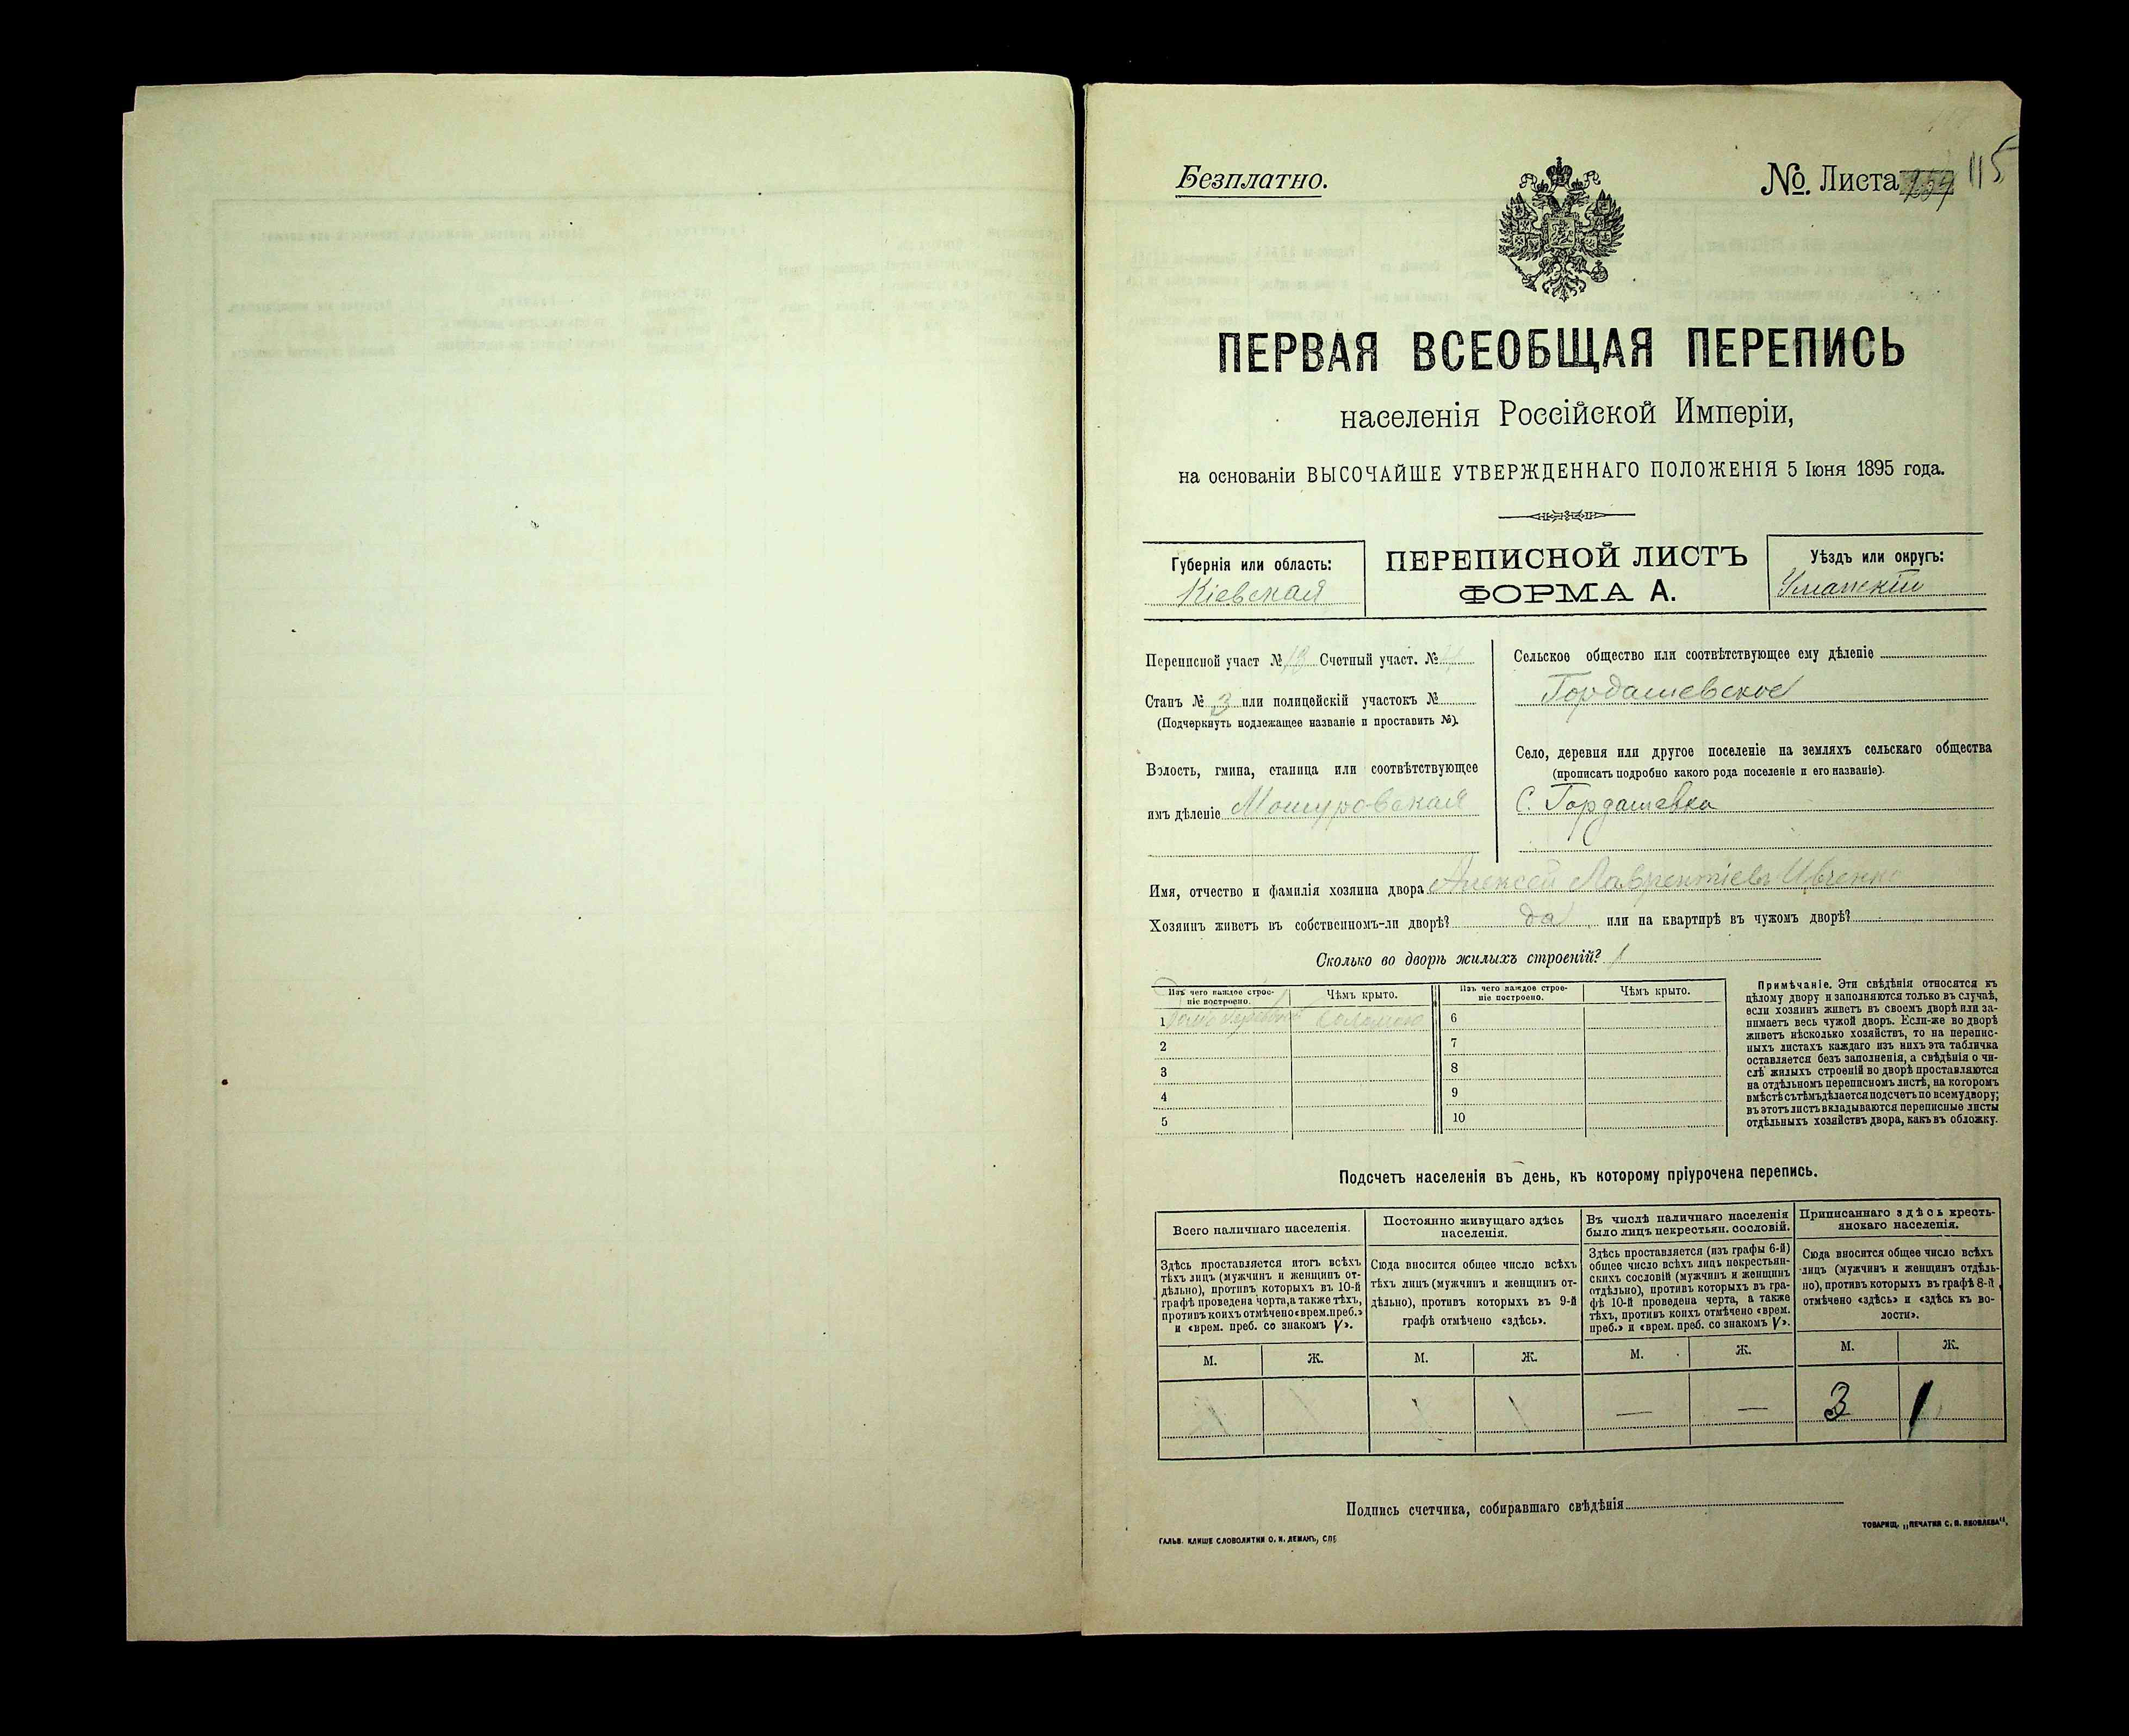 Безплатно.
№. Листа 115
ПЕРВАЯ ВСЕОБЩАЯ ПЕРЕПИСЬ
населенія Россійской Имперіи,
на основаніи ВЫСОЧАЙШЕ УТВЕРЖДЕННАГО ПОЛОЖЕНІЯ 5 Іюня 1895 года.
Губернія или область:
Кіевская
ПЕРЕПИСНОЙ ЛИСТЪ
ФОРМА А.
Уѣздъ или округъ:
Уманскій
Переписной участ № 13 Счетный участ. №
Станъ № 3 или полицейскій участокъ №
(Подчеркнуть подлежащее названіе и проставить №).
Волость, гмина, станица или соотвѣтствующее
имъ дѣленіе Мошуровская
Сельское общество или соотвѣтствующее ему дѣленіе
Гордашевское
Село, деревня или другое поселеніе на земляхъ сельскаго общества
(прописать подробно какого рода поселеніе и его названіе).
С. Гордашевка
Имя, отчество и фамилія хозяина двора Алексей Лаврентіевъ Ивченко
Хозяинъ живетъ въ собственномъ-ли дворѣ? да или на квартирѣ въ чужомъ дворѣ?
Сколько во дворѣ жилыхъ строеній? 1
Изъ чего каждое строе-
ніе построено.
Чѣмъ крыто.
Изъ чего каждое строе-
ніе построено.
Чѣмъ крыто.
1 Соломою 6
2 7
3 8
4 9
5 10
Примѣчаніе. Эти свѣдѣнія относятся къ
цѣлому двору и заполняются только въ случаѣ,
если хозяинъ живетъ въ своемъ дворѣ или за-
нимаетъ весь чужой дворъ. Если-же во дворѣ
живетъ нѣсколько хозяйствъ, то на перепис-
ныхъ листахъ каждаго изъ нихъ эта табличка
оставляется безъ заполненія, а свѣдѣнія о чи-
слѣ жилыхъ строеній во дворѣ проставляются
на отдѣльномъ переписномъ листѣ, на которомъ
вмѣстѣ съ тѣмъ дѣлается подсчетъ по всему двору;
въ этотъ листъ вкладываются переписные листы
отдѣльныхъ хозяйствъ двора, какъ въ обложку.
Подсчетъ населенія въ день, къ которому пріурочена перепись.
Всего наличнаго населенія.
Здѣсь проставляется итогъ всѣхъ
тѣхъ лицъ (мужчинъ и женщинъ от-
дѣльно), противъ которыхъ въ 10-й
графѣ проведена черта, а также тѣхъ,
противъ коихъ отмѣчено «врем. преб.»
и «врем. преб. со знакомъ V».
Постоянно живущаго здѣсь
населенія.
Сюда вносится общее число всѣхъ
тѣхъ лицъ (мужчинъ и женщинъ от-
дѣльно), противъ которыхъ въ 9-й
графѣ отмѣчено «здѣсь».
Въ числѣ наличнаго населенія
было лицъ некрестьян. сословій.
Здѣсь проставляется (изъ графы 6-й)
общее число всѣхъ лицъ некрестьян-
скихъ сословій (мужчинъ и женщинъ
отдѣльно), противъ которыхъ въ гра-
фѣ 10-й проведена черта, а также
тѣхъ, противъ коихъ отмѣчено «врем.
преб.» и «врем. преб. со знакомъ V».
Приписаннаго здѣсь кресть-
янскаго населенія.
Сюда вносится общее число всѣхъ
лицъ (мужчинъ и женщинъ отдѣль-
но), противъ которыхъ въ графѣ 8-й
отмѣчено «здѣсь» и «здѣсь къ во-
лости».
М. Ж. М. Ж. М. Ж. М. Ж.
— — 3 1
Подпись счетчика, собиравшаго свѣдѣнія
ГАЛЬВ. КЛИШЕ СЛОВОЛИТНИ О. И. ЛЕМАНЪ, СПБ
ТОВАРИЩ. „ПЕЧАТНЯ С. П. ЯКОВЛЕВА".